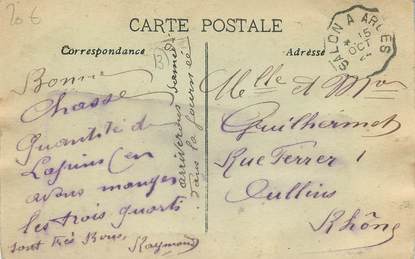 20 €
CARTE POSTALE
Correspondance
Adresse
SALON A ARLES
15
OCT
Bonne
Chasse
Quantité de
Lapins (en
avons mangés
les trois quarts
sont très bons,
Raymond
arriverons samedi
dans la journée
Melle et Mme
Guilhermet
Rue Ferrer 1
Oullins
Rhône